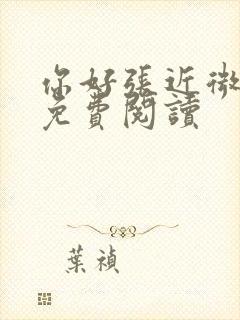 你好張近微
免費閱讀
葉禎